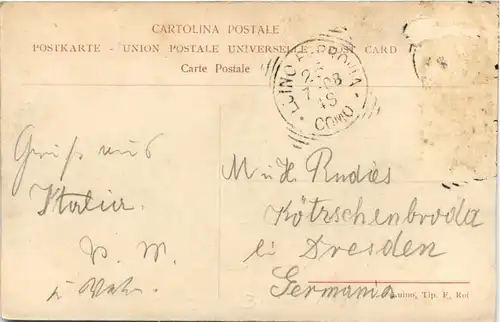 CARTOLINA POSTALE
POSTKARTE - UNION POSTALE UNIVERSELLE POST CARD
Carte Postale
LUINO FERROVIA
COMO
Gruß aus
Italia.
M u H. Rudies
Kötzschenbroda
bei Dresden
Germania
Luino, Tip. F. Roi